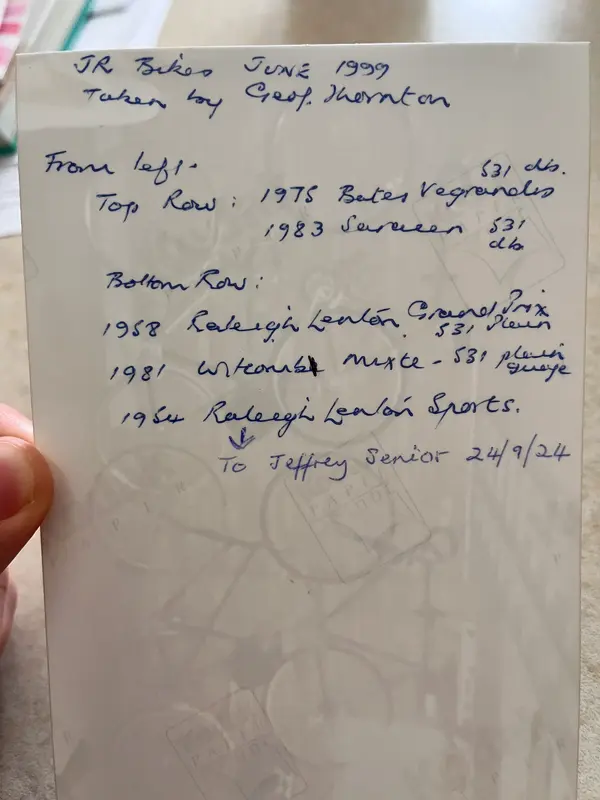 JR Bikes JUNE 1999
Taken by Geof. Thornton
From left.
531 db.
Top Row: 1975 Bates Vegrandis
1983 Saraceen 531
db
Bottom Row:
1958 Raleigh Lenton Grand Prix
531 Plain
1981 Witcomb Mixte - 531 plain
guage
1954 Raleigh Lenton Sports.
To Jeffrey Senior 24/9/24